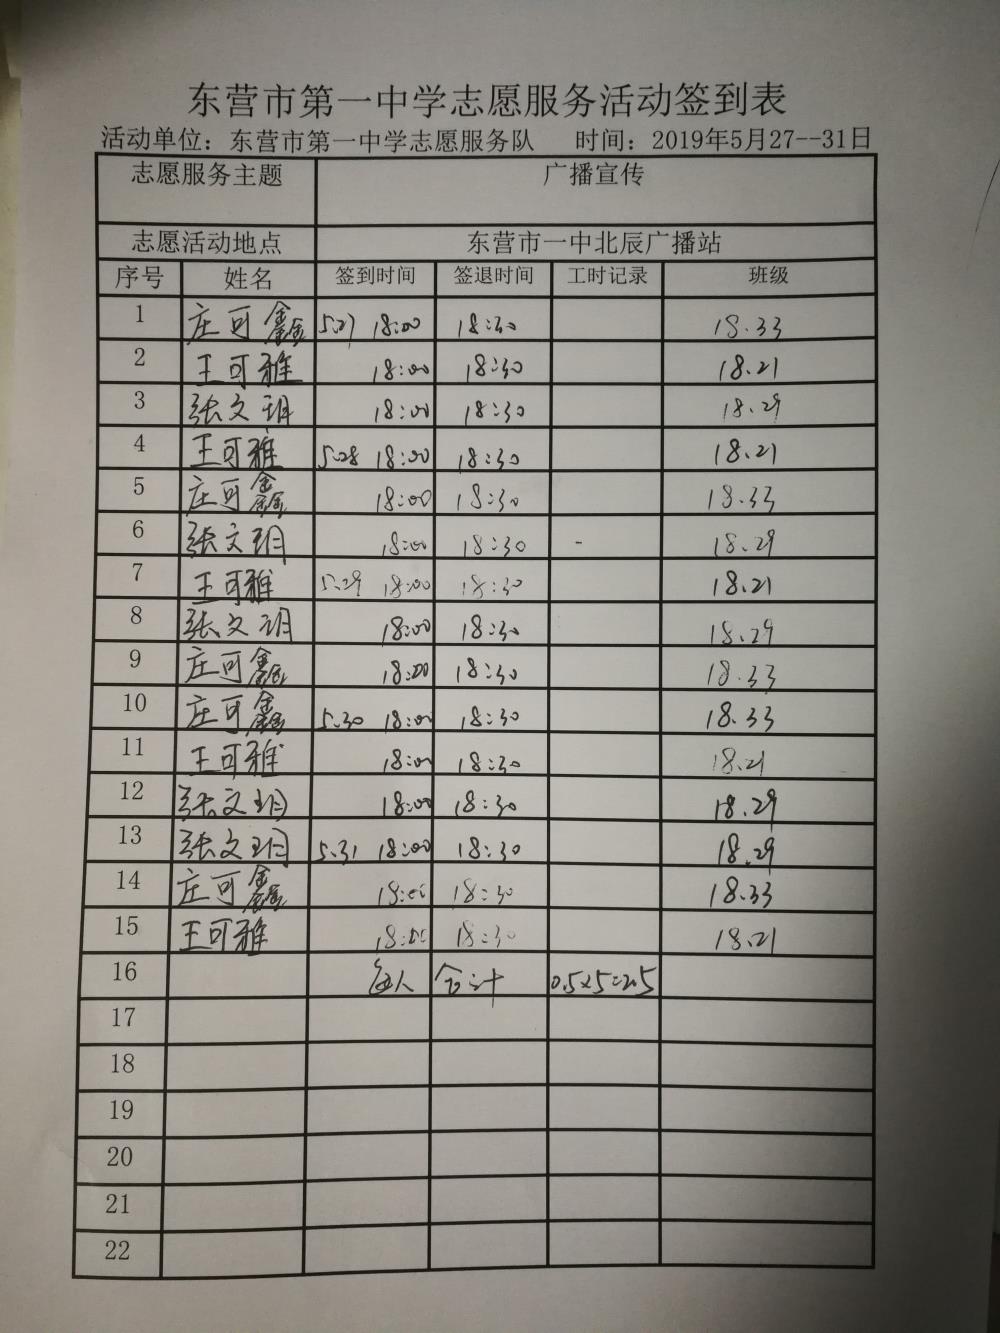 东营市第一中学志愿服务活动签到表
活动单位：东营市第一中学志愿服务队 时间：2019年5月27--31日
志愿服务主题 广播宣传
志愿活动地点 东营市一中北辰广播站
序号 姓名 签到时间 签退时间 工时记录 班级
1 庄可鑫 5.27 18:00 18:30 18.33
2 王可雅 18:00 18:30 18.21
3 张文玥 18:00 18:30 18.29
4 王可雅 5.28 18:00 18:30 18.21
5 庄可鑫 18:00 18:30 18.33
6 张文玥 18:00 18:30 - 18.29
7 王可雅 5.29 18:00 18:30 18.21
8 张文玥 18:00 18:30 18.29
9 庄可鑫 18:00 18:30 18.33
10 庄可鑫 5.30 18:00 18:30 18.33
11 王可雅 18:00 18:30 18.21
12 张文玥 18:00 18:30 18.29
13 张文玥 5.31 18:00 18:30 18.29
14 庄可鑫 18:00 18:30 18.33
15 王可雅 18:00 18:30 18.21
16 每人 合计 0.5×5=2.5
17
18
19
20
21
22